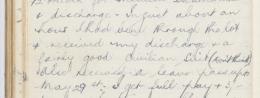 & discharge. In just about an
hour I had been through the lot
& received my discharge & a
fairly good civilian suit
also received a leave pass up to
May 29th. I get full pay +